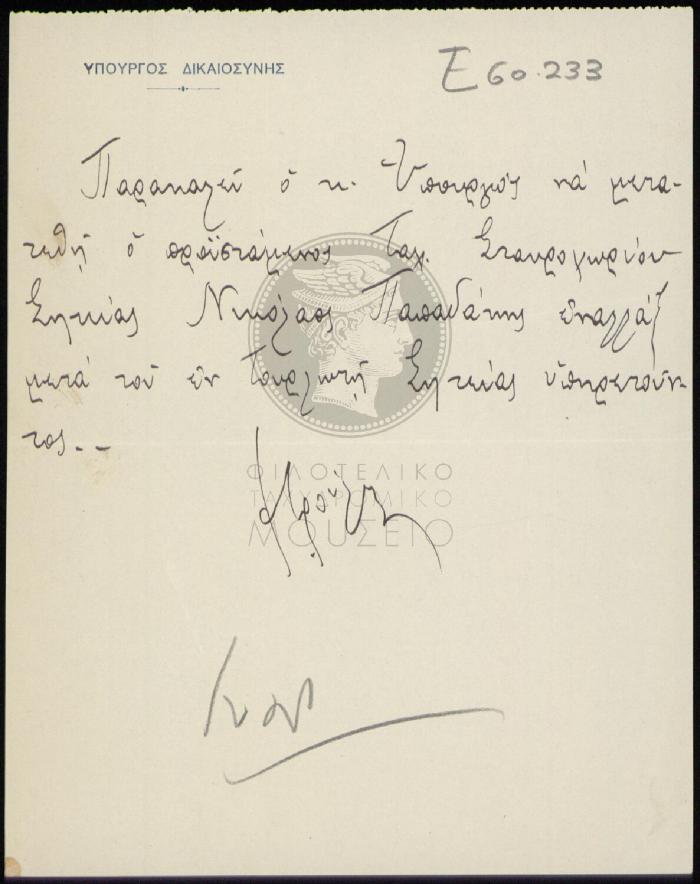 ΥΠΟΥΡΓΟΣ ΔΙΚΑΙΟΣΥΝΗΣ
Ε60.233
Παρακαλεῖ ὁ κ. Ὑπουργός νά μετα-
τεθῇ ὁ προϊστάμενος Ταχ. Σταυροχωρίου
Σητείας Νικόλαος Παπαδάκης ἐναλλάξ
μετά τοῦ ἐν Τουρλωτῇ Σητείας ὑπηρετοῦν-
τος..
ΦΙΛΟΤΕΛΙΚΟ
ΤΑΧΥΔΡΟΜΙΚΟ
ΜΟΥΣΕΙΟ